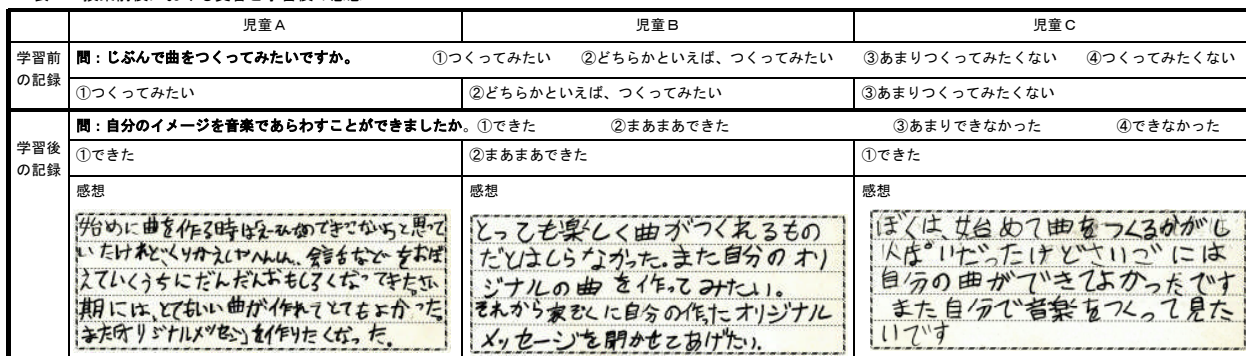 児童A 児童B 児童C
学習前の記録
問:じぶんで曲をつくってみたいですか。 ①つくってみたい ②どちらかといえば、つくってみたい ③あまりつくってみたくない ④つくってみたくない
①つくってみたい ②どちらかといえば、つくってみたい ③あまりつくってみたくない
学習後の記録
問:自分のイメージを音楽であらわすことができましたか。①できた ②まあまあできた ③あまりできなかった ④できなかった
①できた ②まあまあできた ①できた
感想
始めに曲を作る時は
いたけれど、くりかえしやへんしん、会話などをおぼ
えていくうちにだんだんおもしろくなってきた。さい
期には、とてもいい曲が作れてとてもよかった。
またオリジナルメッセージを作りたくなった。
感想
とっても楽しく曲がつくれるもの
だとはしらなかった。また自分のオリ
ジナルの曲を作ってみたい。
それから家ぞくに自分の作ったオリジナル
メッセージを聞かせてあげたい。
感想
ぼくは、始めて曲をつくるかがし
んぱいだったけどさいごには
自分の曲ができてよかったです
また自分で音楽をつくって見た
いです